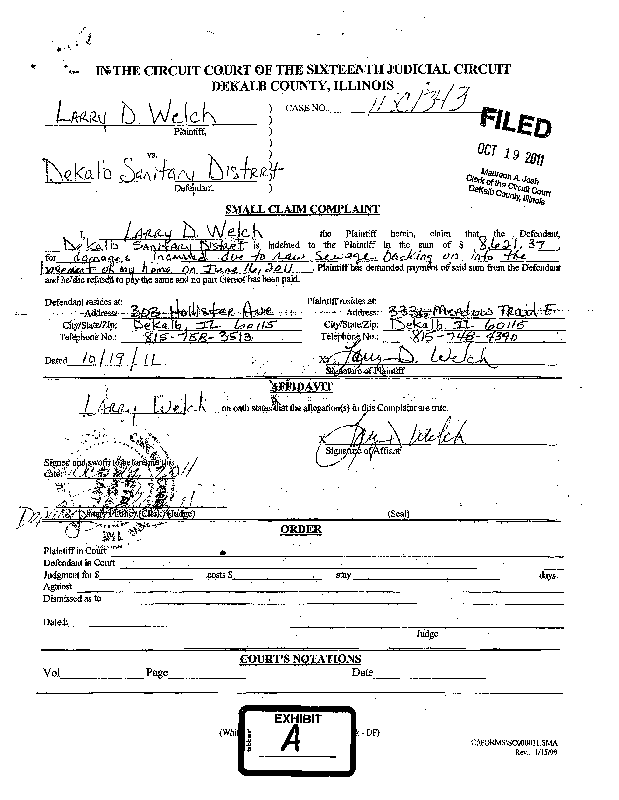 IN THE CIRCUIT COURT OF THE SIXTEENTH JUDICIAL CIRCUIT
DEKALB COUNTY, ILLINOIS
Larry D. Welch
Plaintiff,
vs.
Dekalb Sanitary District
Defendant.
) CASE NO.
FILED
OCT 19 2011
Maureen A. Josh
Clerk of the Circuit Court
DeKalb County, Illinois
SMALL CLAIM COMPLAINT
I, Larry D. Welch the Plaintiff herein, claim that the Defendant,
Dekalb Sanitary District is indebted to the Plaintiff in the sum of $ 8,621.37
for damages incurred due to raw sewage backing up into the
basement of my home on June 16, 2011. Plaintiff has demanded payment of said sum from the Defendant
and he/she refused to pay the same and no part thereof has been paid.
Defendant resides at:
Address: 303 Hollister Ave
City/State/Zip: Dekalb, IL 60115
Telephone No.: 815-758-3513
Plaintiff resides at:
Address: Meadow Trail E
City/State/Zip: Dekalb, IL 60115
Telephone No.: 815-748-4390
Dated 10/19/11
X Larry D. Welch
Signature of Plaintiff
AFFIDAVIT
Larry Welch on oath states that the allegation(s) in this Complaint are true.
X Larry D Welch
Signature of Affiant
Signed and sworn to before me this
date
(Notary Public) (Clerk) (Judge)
(Seal)
ORDER
Plaintiff in Court
Defendant in Court
Judgment for $ costs $ stay days.
Against
Dismissed as to
Dated:
Judge
COURT'S NOTATIONS
Vol Page Date
EXHIBIT
A
(Whi - DF)
Rev. 1/15/99